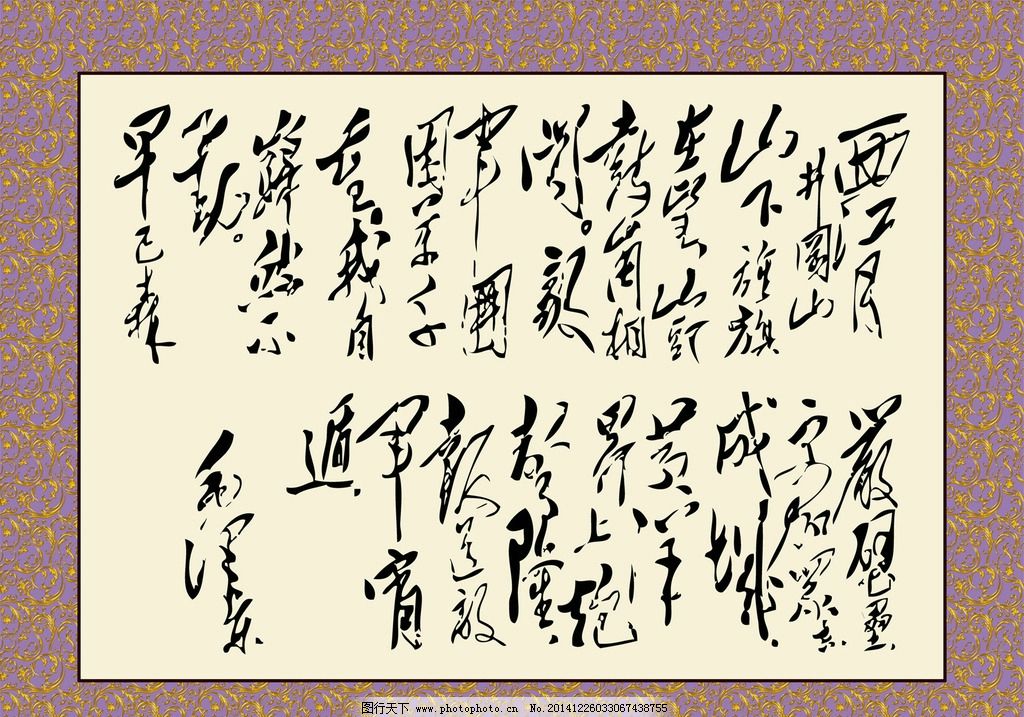 西江月
井岡山
山下旌旗
在望山頭
鼓角相
聞。敵
軍圍
困萬千
重我自
巋然不
動。
早已森
嚴壁壘
更加眾志
成城
黄洋
界上炮
聲隆
報道敵
軍宵
遁
毛澤東
图行天下 www.photophoto.cn No.20141226033067438755